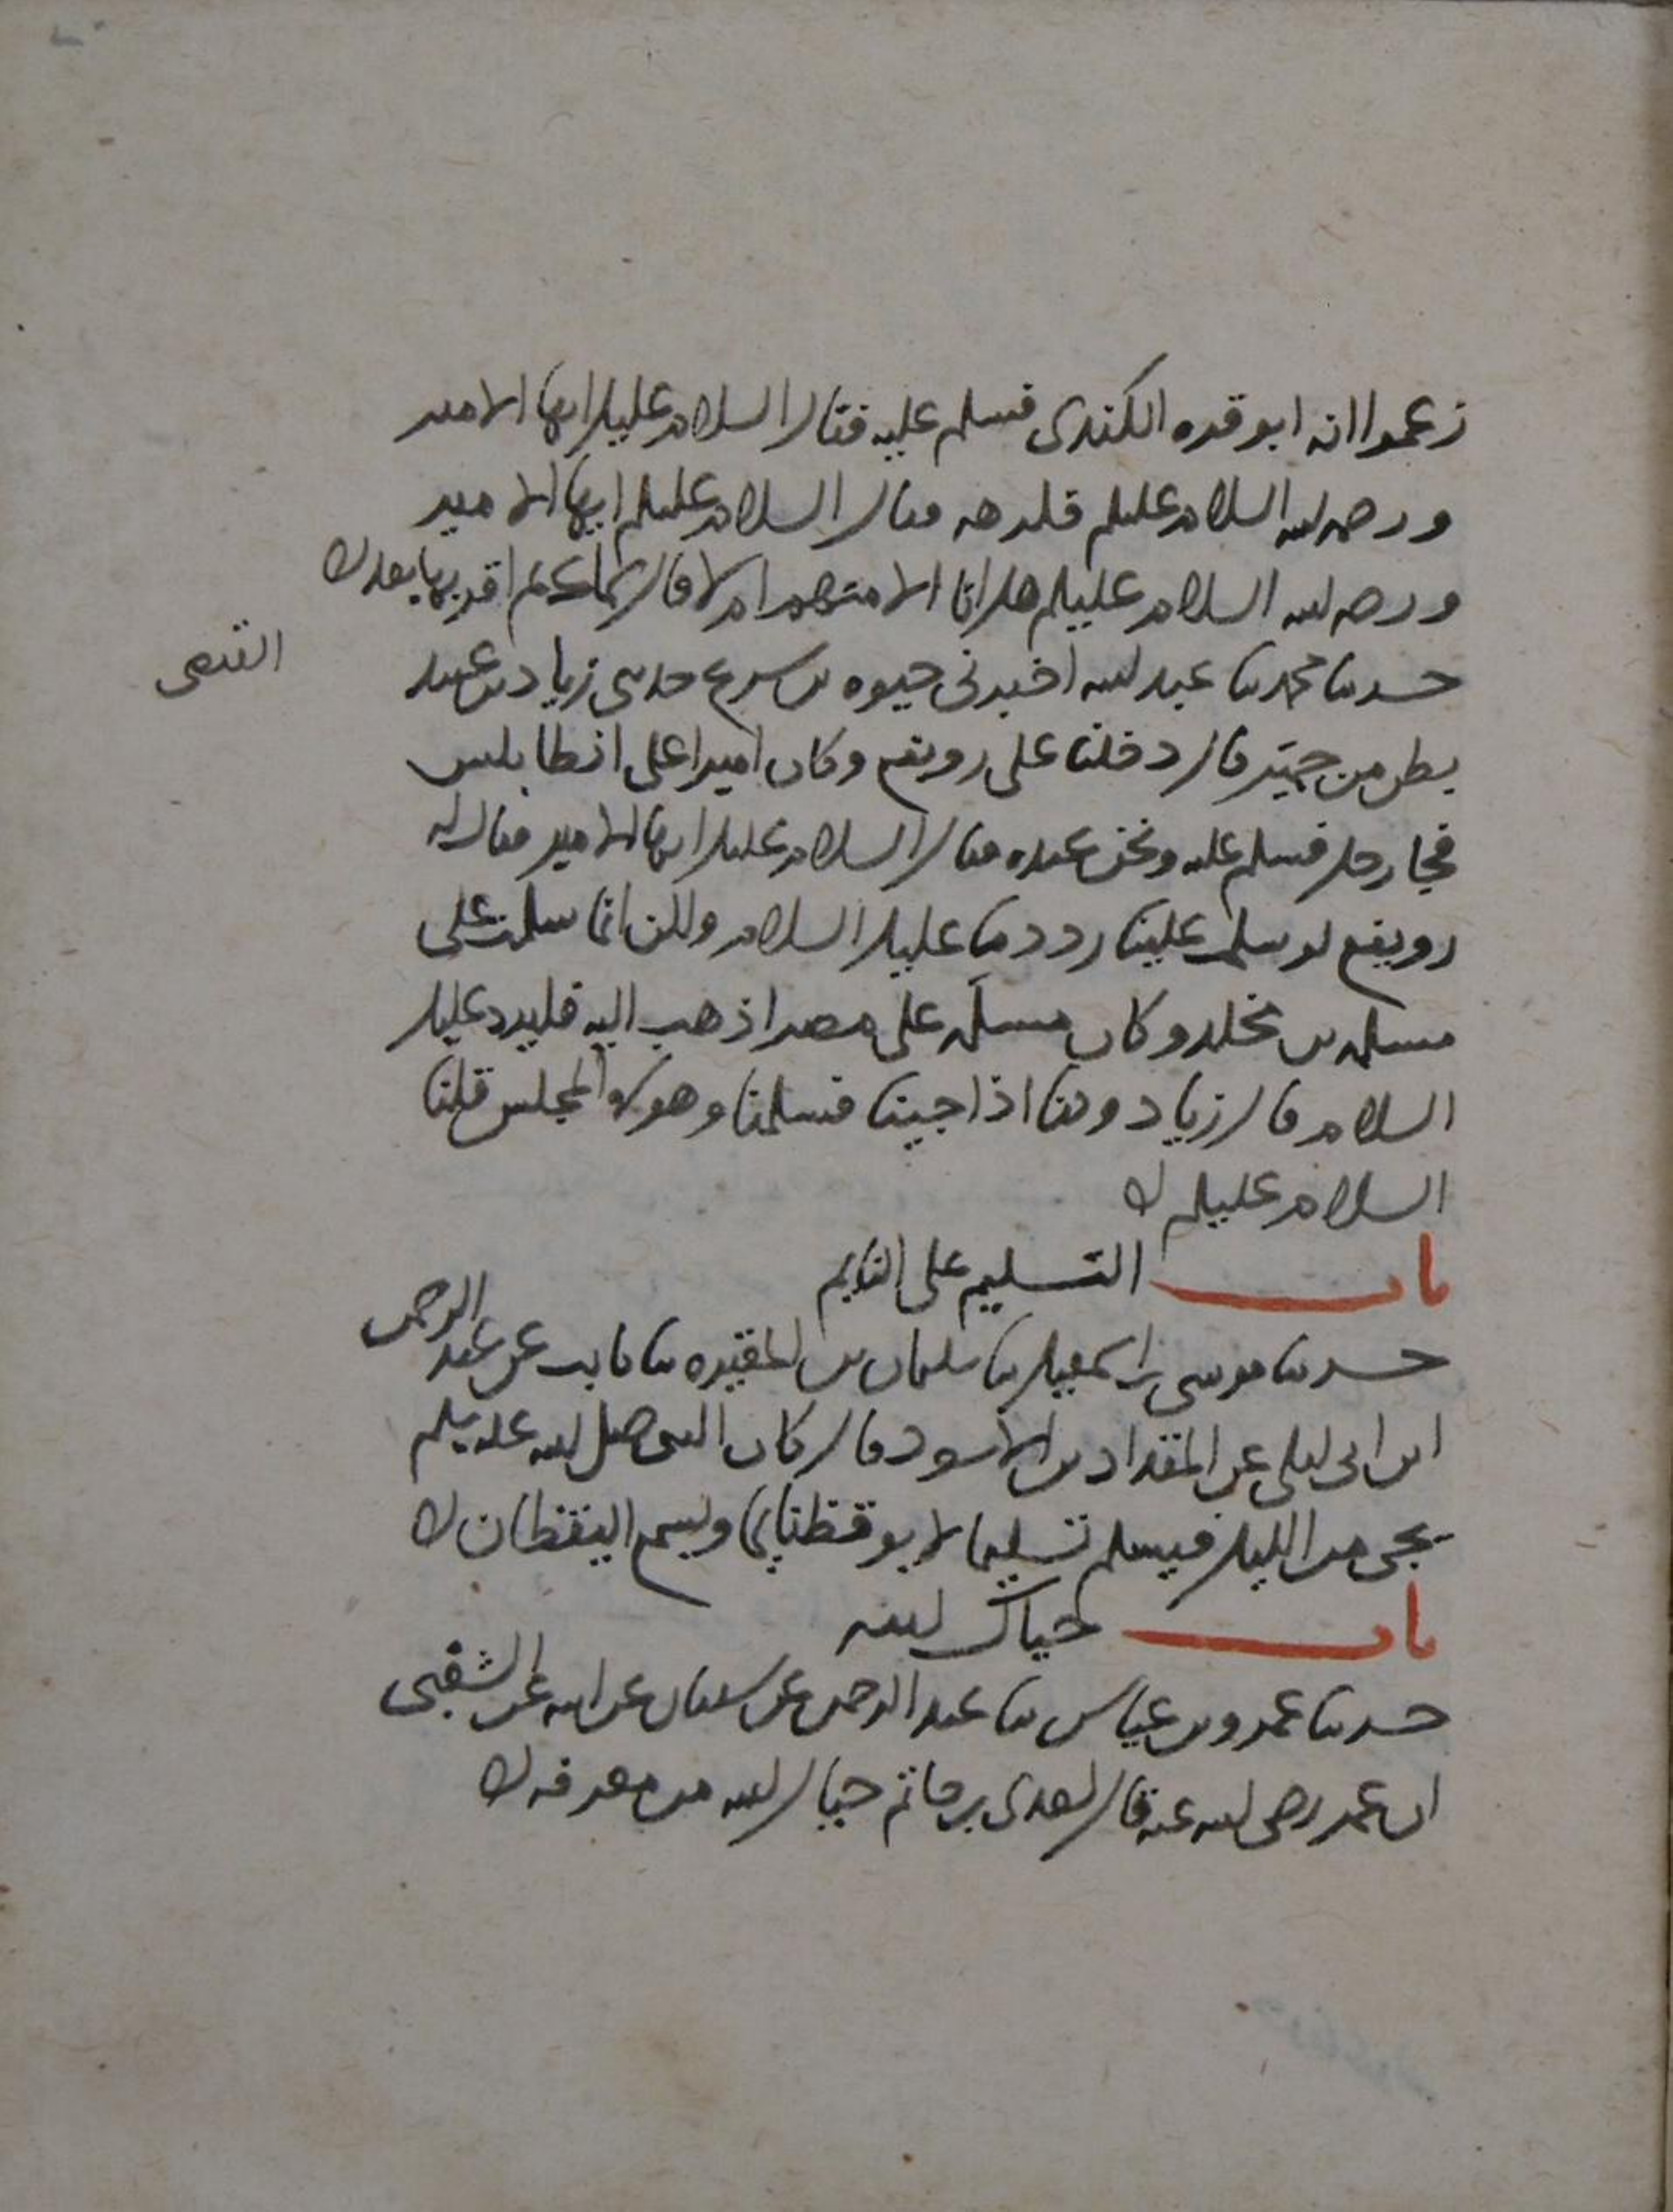 زعموا انه ابو قره الكندى فسلم عليه فقال السلام عليك ايها الامير
ورحمه الله السلام عليكم فكرهه فقال السلام عليكم ايها الامير
ورحمه الله السلام عليكم هل انا الا منهم ام لا قال كما كنتم اقر بها بعد
حدثنا محمد ثنا عبد الله اخبرنى حيوه بن شريح حدثنى زياد بن عبيد
القبضى
بطن من حمير قال دخلنا على رويفع وكان اميرا على انطابلس
فجا رجل فسلم عليه ونحن عنده فقال السلام عليك ايها الامير فقال له
رويفع لو سلمت علينا رددنا عليك السلام ولكن انما سلمت على
مسلمه بن مخلد وكان مسلمه على مصر اذهب اليه فليرد عليك
السلام قال زياد وكنا اذا جينا فسلمنا وهو فى المجلس قلنا
السلام عليكم
باب التسليم على النايم
حدثنا موسى بن اسمعيل ثنا سليمان بن المغيره ثنا ثابت عن عبد الرحمن
ابن ابى ليلى عن المقداد بن الاسود قال كان النبى صلى الله عليه وسلم
يجى من الليل فيسلم تسليما لا يوقظ نايما ويسمع اليقظان
باب حياك الله
حدثنا عمرو بن عباس ثنا عبد الرحمن عن سفيان عن ابيه عن الشعبى
ان عمر رضى الله عنه قال لعدى بن حاتم حياك الله من معرفه